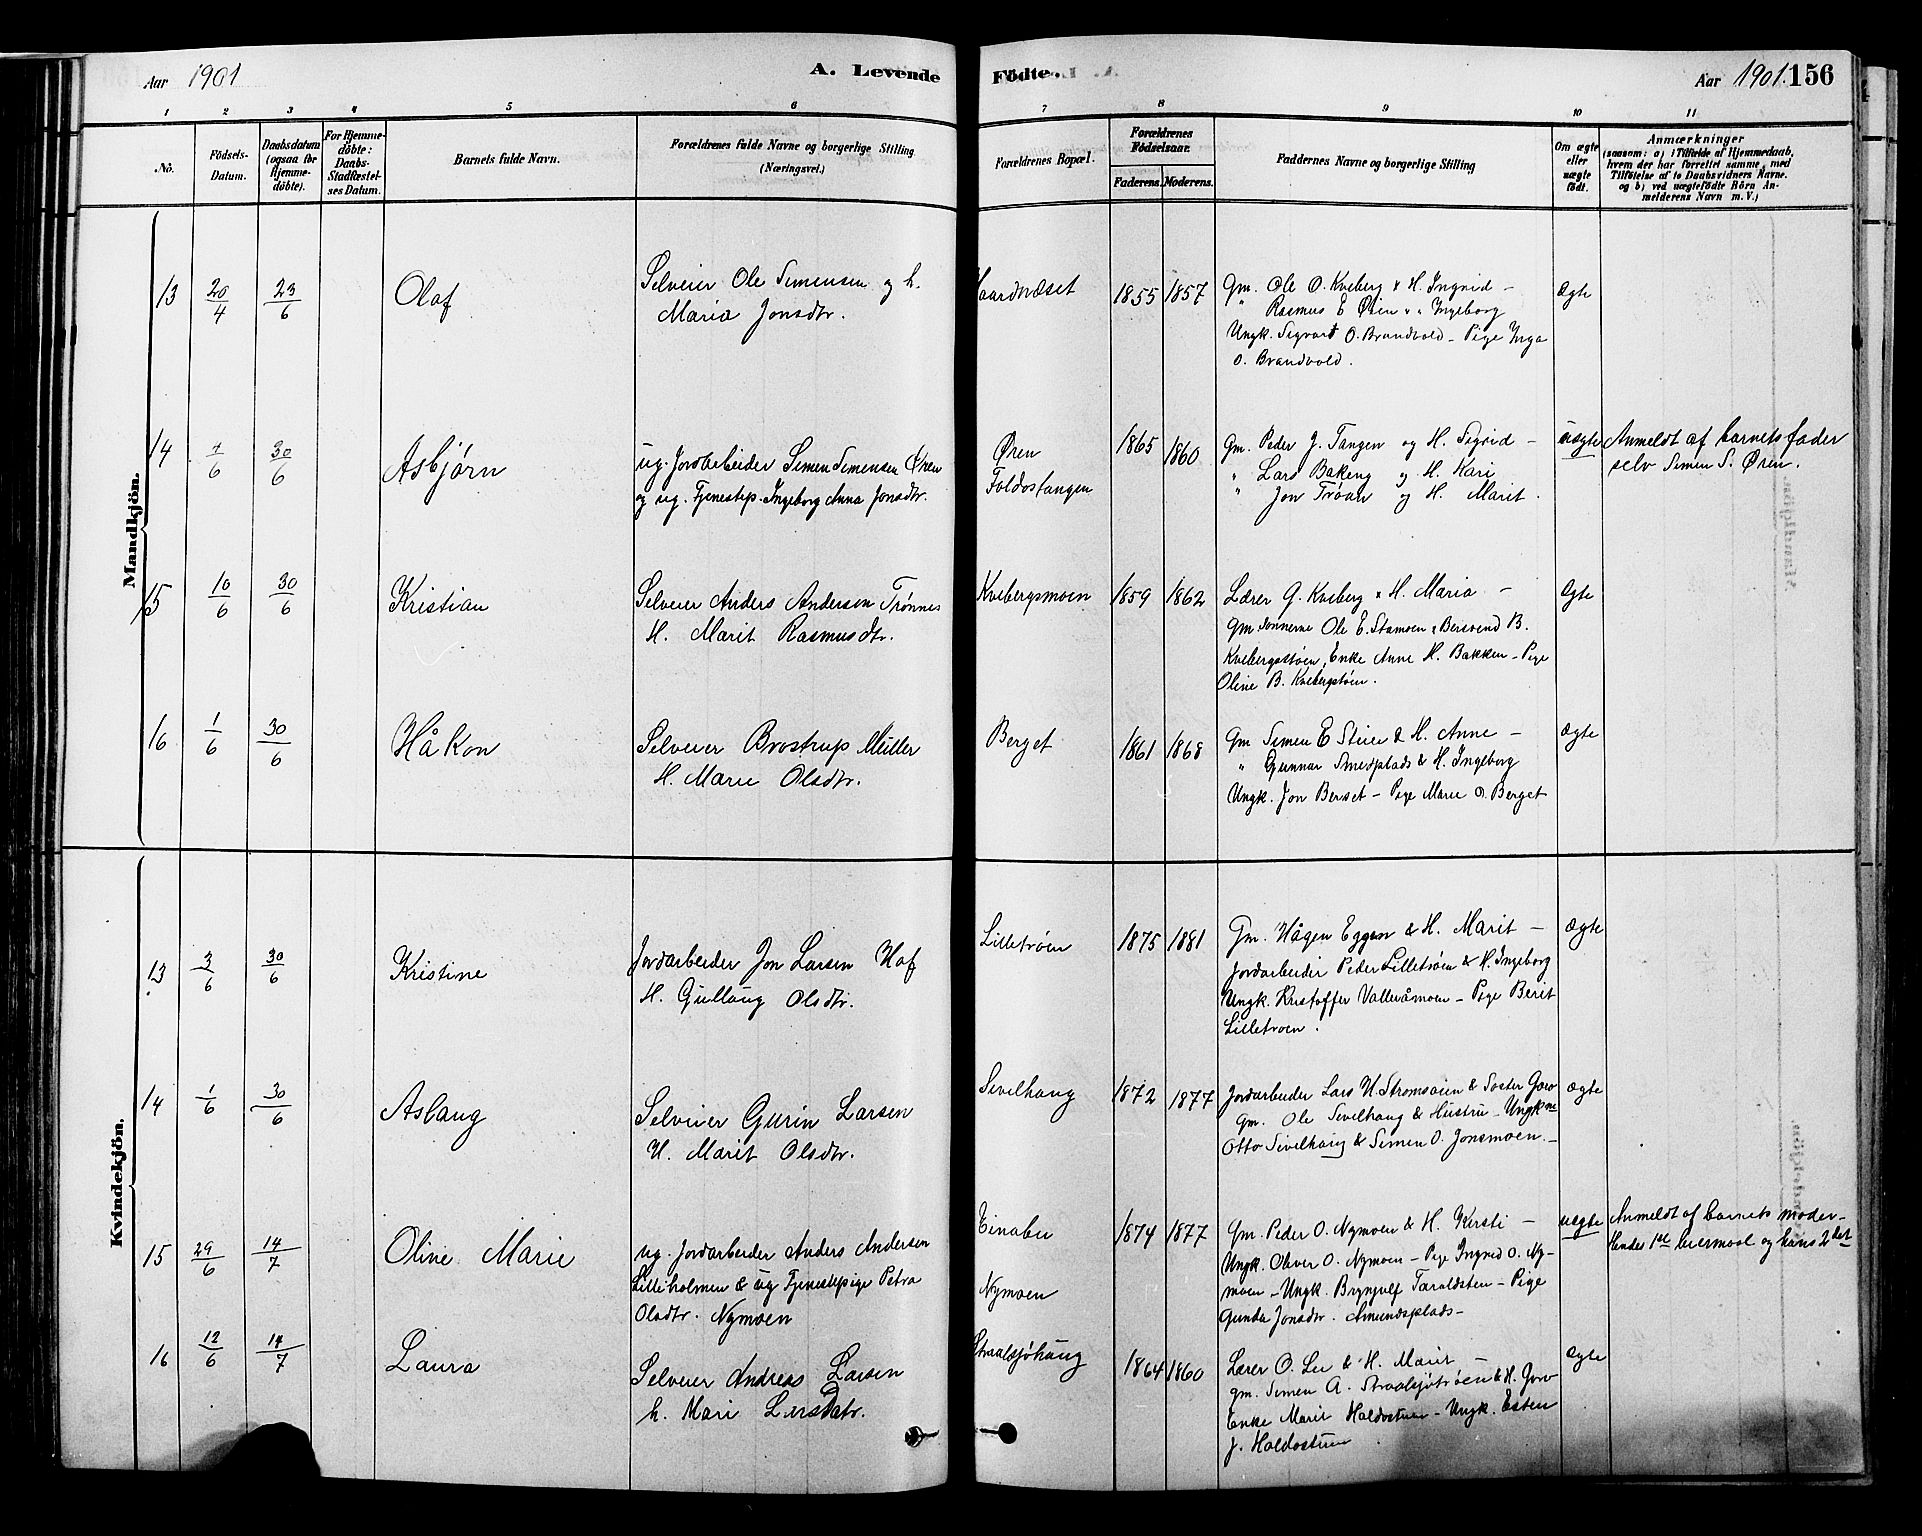 Aar 1901
A. Levende
Fødte.
Aar 1901. 156
1 2 3 4 5 6 7 8 9 10 11
No.
Födsels-
Datum.
Daabsdatum
(ogsaa for
Hjemme-
döbte).
For Hjemme-
döbte:
Daabs-
Stadfæstel-
ses Datum.
Barnets fulde Navn.
Forældrenes fulde Navne og borgerlige Stilling
(Næringsvei.)
Forældrenes Bopæl.
Forældrenes
Födselsaar.
Faderens. Moderens.
Faddernes Navne og borgerlige Stilling
Om ægte
eller
uægte
födt.
Anmærkninger
(saasom: a) i Tilfælde af Hjemmedaab,
hvem der har forrettet samme, med
Tilföielse af to Daabsvidners Navne.
og b) ved uægtefödte Börn An-
melderens Navn m. V.)
Mandkjön.
13 20/4 23/6 Olaf
Selveier Ole Simensen og h.
Maria Jonsdtr.
Haardnæset 1855 1857
Gm. Ole O. Kveberg & H. Ingrid –
" Rasmus E Øien " " Ingeborg
Ungk. Sigvart O. Brandvold – Pige Inga
O. Brandvold.
Ægte
14 4/6 30/6 Asbjørn
ug. Jordarbeider Simen Simensen Øren
og ug. Tjenestep. Ingeborg Anna Jonsdtr.
Øren
Foldostangen
1865 1860
Gm. Peder J. Tangen og H. Sigrid –
" Lars Bakeng og H. Kari
" Jon Trøan og H. Marit.
uægte
Anmeldt af barnets fader
selv Simen S. Øren.
15 10/6 30/6 Kristian
Selveier Anders Andersen Trønnes
H. Marit Rasmusdtr.
Kvebergsmoen 1859 1862
Lærer G. Kveberg & H. Maria –
Gm.donnerne Ole E. Stamoen & Bersvend B.
Kvebergsstøen, Enke Anne H. Bakken – Pige
Oline B. Kvebergstøen.
Ægte
16 1/6 30/6 Håkon
Selveier Brostrup Müller
H. Marie Olsdtr.
Berget 1861 1868
Gm Simen E Steie & H. Anne –
" Gunnar Smedplads & H. Ingeborg
Ungk. Jon Berset – Pige Marie O. Berget
Ægte
Kvindekjön.
13 3/6 30/6 Kristine
Jordarbeider Jon Larsen Hof
H. Gullaug Olsdtr.
Lilletrøen 1875 1881
Gm. Hågen Eggen & H. Marit –
Jordarbeider Peder Lilletrøen & H. Ingeborg
Ungk. Kristoffer Vallevåmoen – Pige Berit
Lilletrøen.
Ægte
14 1/6 30/6 Aslaug
Selveier Gurin Larsen
H. Marit Olsdtr.
Sivilhaug 1872 1877
Jordarbeider Lars H. Strømsøien & Søster Goro
Gm. Ole Sivilhaug & Hustru – Ungkne
Otto Sivilhaug & Simen O. Jonsmoen. –
Ægte
15 29/6 14/7 Oline Marie
ug. Jordarbeider Anders Andersen
Lilleholmen & ug Tjenestepige Petra
Olsdtr. Nymoen
Einabu
Nymoen
1874 1877
Gm. Peder O. Nymoen & H. Kersti –
Ungk. Oliver O. Nymoen – Pige Ingrid O. Ny-
moen – Ungk. Brynjulf Taraldsten – Pige
Gunda Jonsdtr. Amundsplads –
uægte
Anmeldt af barnets moder –
Hendes 1ste leiermaal og hans 2det
16 12/6 14/7 Laura
Selveier Andreas Larsen
h. Mari Larsdatr.
Straalsjøhaug 1864 1860
Lærer O. Lie & H. Marit –
gm. Simen A. Straalsjøtrøen & H. Goro
Enke Marit Haldostuen – Ungk. Esten
J. Haldostuen
Ægte